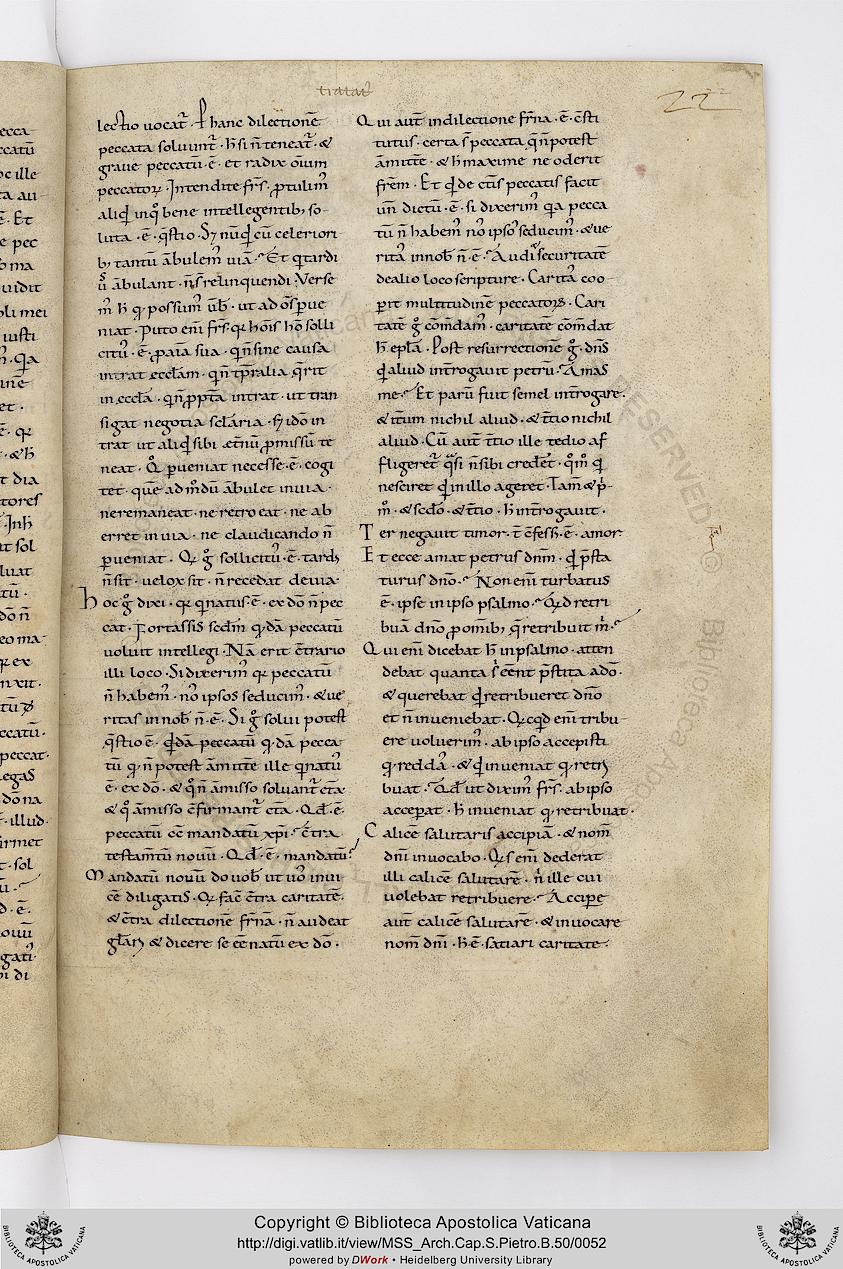 tractat
22
lectio uocat̄. P hanc dilectionē
peccata soluunt̄. h̄ si n̄ teneat̄. &
graue peccatū. ē. et radix om̄ium
peccatoꝝ. Intendite frs̄. ꝓtulim̄
aliqd̄ inqͦ bene intellegentib; so-
luta. ē. q̄stio. Sꝫ nūqd̄ cū celeriori
b; tantū ābulem̄ uiā. Et q̇ tardi
ambulant. n̄ s̄ relinquendi. Verse
m̄ h̄ qͥ possum̄ ūb̄. ut ad om̄s ꝑue
niat. Puto eni frs̄. qꝛ hois̄ hō solli
citū. ē. ꝓ aīa sua. qͥ n̄ sine causa
intrat ecclam̄. qͥ n̄ tp̄ralia q̄rit
in eccla. qͥ n̄ ꝓpt̄a intrat. ut tran
sigat negotia sc̄laria. sꝫ idō in
trat ut aliqd̄ sibi et̄nū ꝓmissū te
neat. qͦ ꝑueniat necesse. ē. cogi
tet. quē ad m̄dū ābulet in uia.
ne remaneat. ne retro eat. ne ab
erret in uia. ne claudicando n̄
ꝑueniat. Qͥ g̊ sollicitū. ē. tardꝰ
n̄ sit. uelox sit. n̄ recedat de uia.
hoc g̊ dixi. qꝛ qͥ natus. ē. ex dō n̄ pec
cat. Fortassis scd̄m qͦ dā peccatū
uoluit intellegi. Nā erit c̄trario
illi loco. Si dixerim̄ qꝛ peccatū
n̄ habem̄. no ipsos seducim̄. & ue
ritas in nob̄ n̄. ē. Si g̊ solui potest
q̄stio ē. qd̄dā peccatū qͦ dā pecca
tū qͦ n̄ potest āmittē ille qͥ natū
ē. ex dō. & qͦ n̄ āmisso soluant̄ cet̄a
& qͦ āmisso c̄firmant̄ cet̄a. Qd̄. ē.
peccatū cc̄ mandatū xpi. c̄tra
testamt̄ū nouū. Qd̄. ē. mandatū
Mandatū nouū do uob̄ ut uo inui
cē diligatis. Qͥ fac̄ c̄tra caritatē.
& c̄tra dilectionē frn̄a. n̄ audeat
glari & dicere se ēē natū ex dō.
Qui aut̄ in dilectione frn̄a. ē. c̄sti
tutus. certa s̄ peccata q̄ n̄ potest
āmittē. & h̄ maxime ne oderit
frēm. Et qͥd de cet̄is peccatis facit
un̄ dictū. ē. si dixerim̄ qͥa pecca
tū n̄ habem̄ no ipso seducim̄. & ue
ritā in nob̄ n̄ ē. Audi securitatē
de alio loco scripture. Carita coo
ꝑit multitudinē peccatoꝝ. Cari
tatē g̊ com̄dam̄. caritatē com̄dat
h̄ epl̄a. Post resurrectionē g̊. dn̄s
qͥd aliud int̄rogauit petrū. Amas
me. Et parū fuit semel int̄rogare.
& it̄um nichil aliud. & t̄tio nichil
aliud. Cū aut̄ t̄tio ille tedio af
fligeret̄ qͣsi n̄ sibi credet̄. qͦm̄ qͥ
nesciret qͥd in illo ageret. Tam̄ & p̄
m̄. & scdo. & t̄tio. h̄ int̄rogauit.
Ter negauit timor. t̄ c̄fess̄. ē. amor
Et ecce amat petrus dnm̄. qd̄ p̄sta
turus dn̄o. Non eni turbatus
ē. ipse in ipso psalmo. Quid retri
buā dn̄o ꝓ omīb; q̄ retribuit m̄.
Qui eni dicebat h̄ in psalmo. atten
debat quanta s̄ ēent p̄stita a dō.
& querebat qd̄ retribueret dn̄o
et n̄ inueniebat. Qicqd̄ eni tribu
ere uoluerim̄. ab ipso accepisti
qͦ reddā. & qd̄ inueniat qͦ retrī
buat. Qd̄ ut dixim̄ frs̄. ab ipso
acceꝑat. h̄ inueniat qͦ retribuat.
Calicē salutaris accipiā. & nom̄
dn̄i inuocabo. Qͥs eni dederat
illi calicē salutarē. n̄ ille cui
uolebat retribuere. Acciꝑe
aut̄ calicē salutarē. & inuocare
nom̄ dn̄i. h̄ ē. satiari caritate.
RESERVED © Biblioteca Apo
Copyright © Biblioteca Apostolica Vaticana
http://digi.vatlib.it/view/MSS_Arch.Cap.S.Pietro.B.50/0052
powered by DWork • Heidelberg University Library
BIBLIOTECA APOSTOLICA VATICANA
BIBLIOTECA APOSTOLICA VATICANA